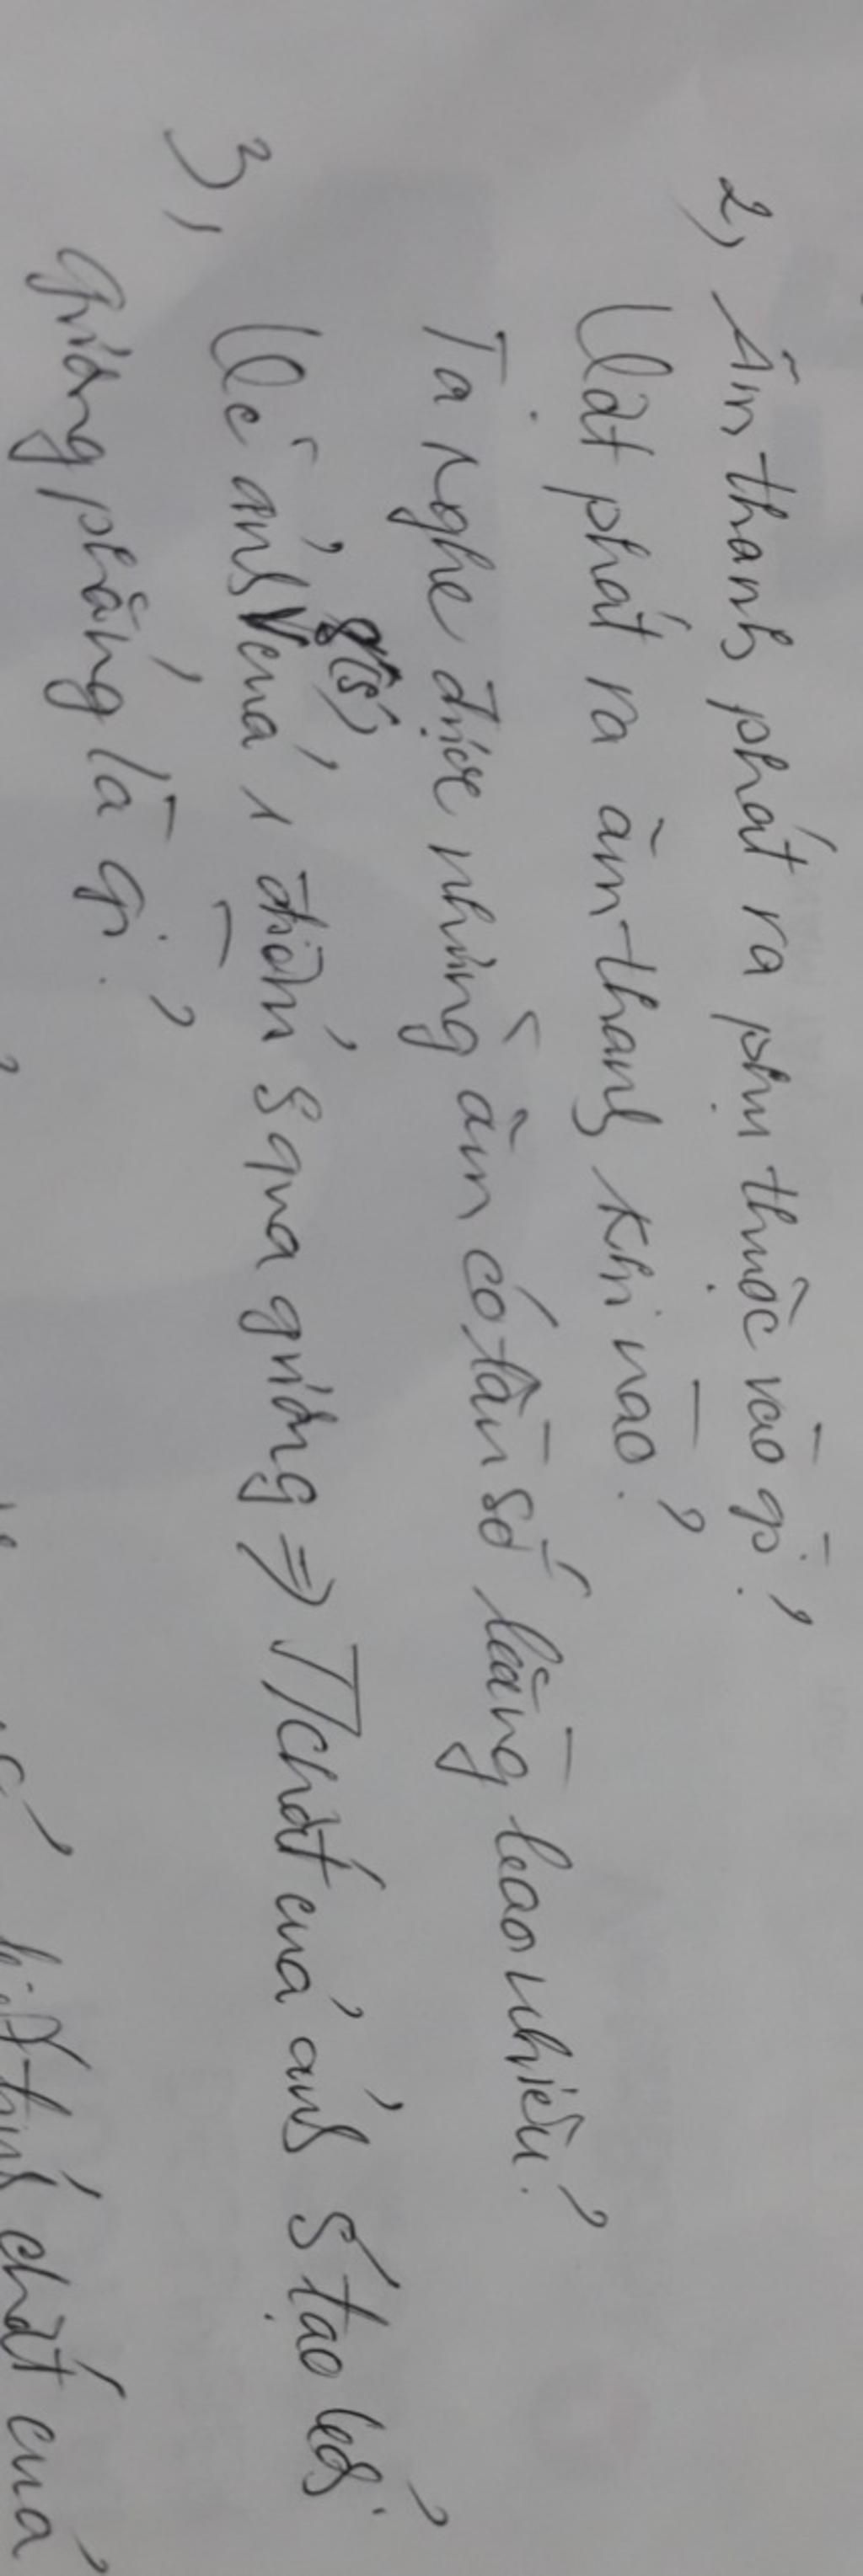 2, Âm thanh phát ra phụ thuộc vào gì?
Vật phát ra âm thanh khi nào?
Ta nghe được những âm có tần số bằng bao nhiêu?
3, Vẽ ảnh (S') của 1 điểm S qua gương => T/chất của ảnh S' tạo bởi
gương phẳng là gì?
chất của